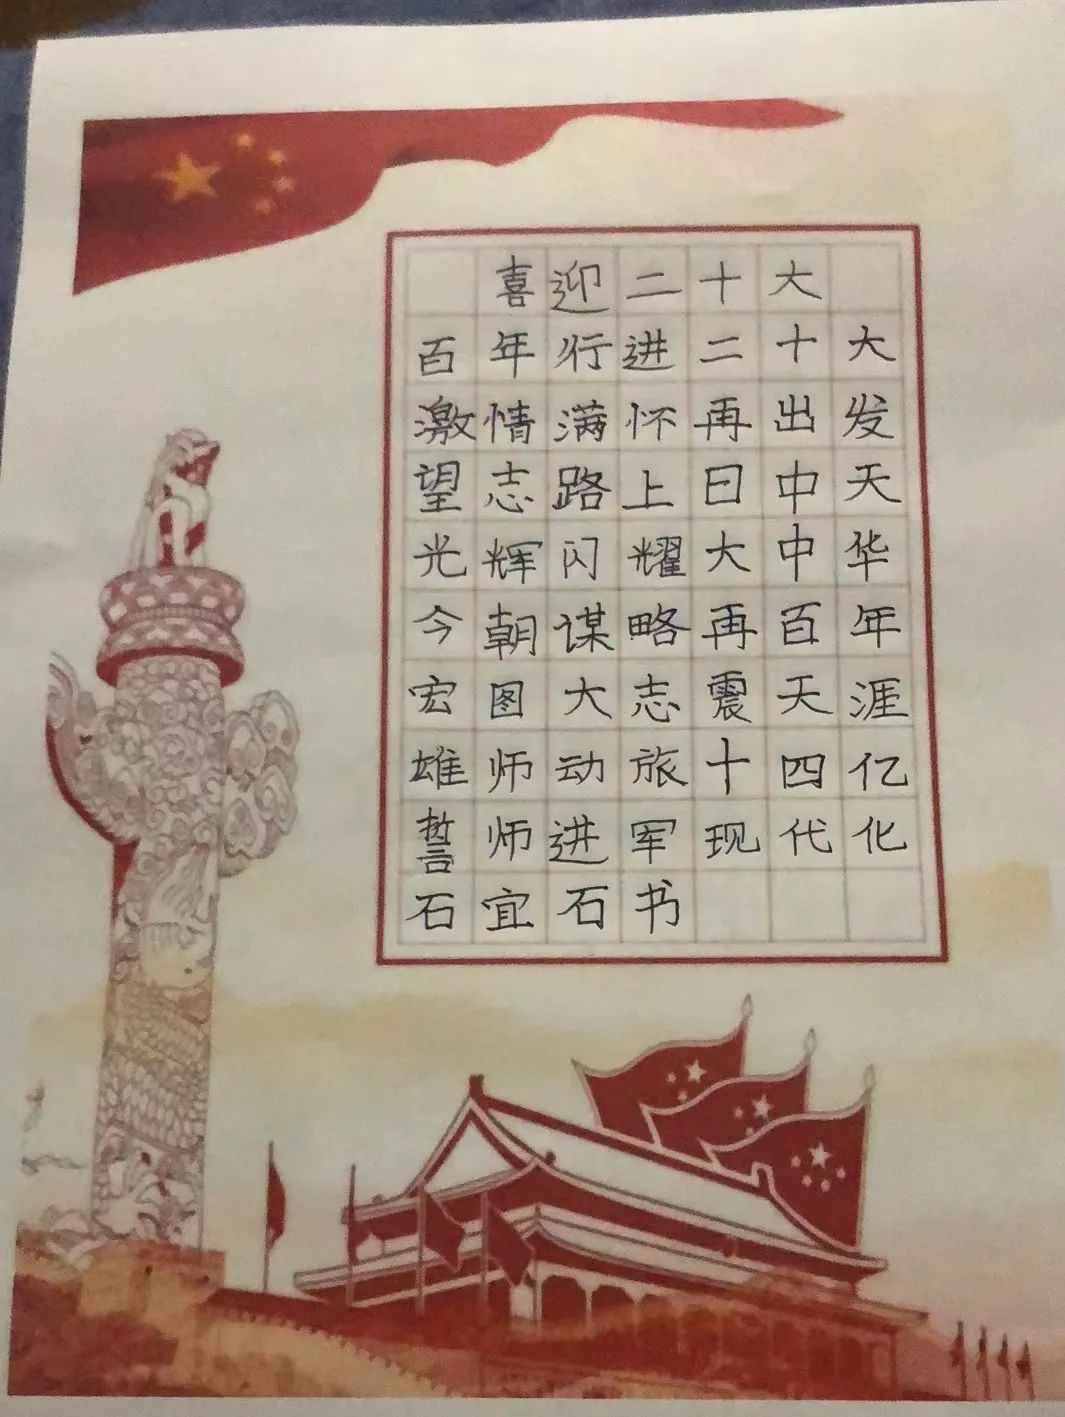 喜迎二十大
百年行进二十大
激情满怀再出发
望志路上日中天
光辉闪耀大中华
今朝谋略再百年
宏图大志震天涯
雄师动旅十四亿
誓师进军现代化
石宜石书